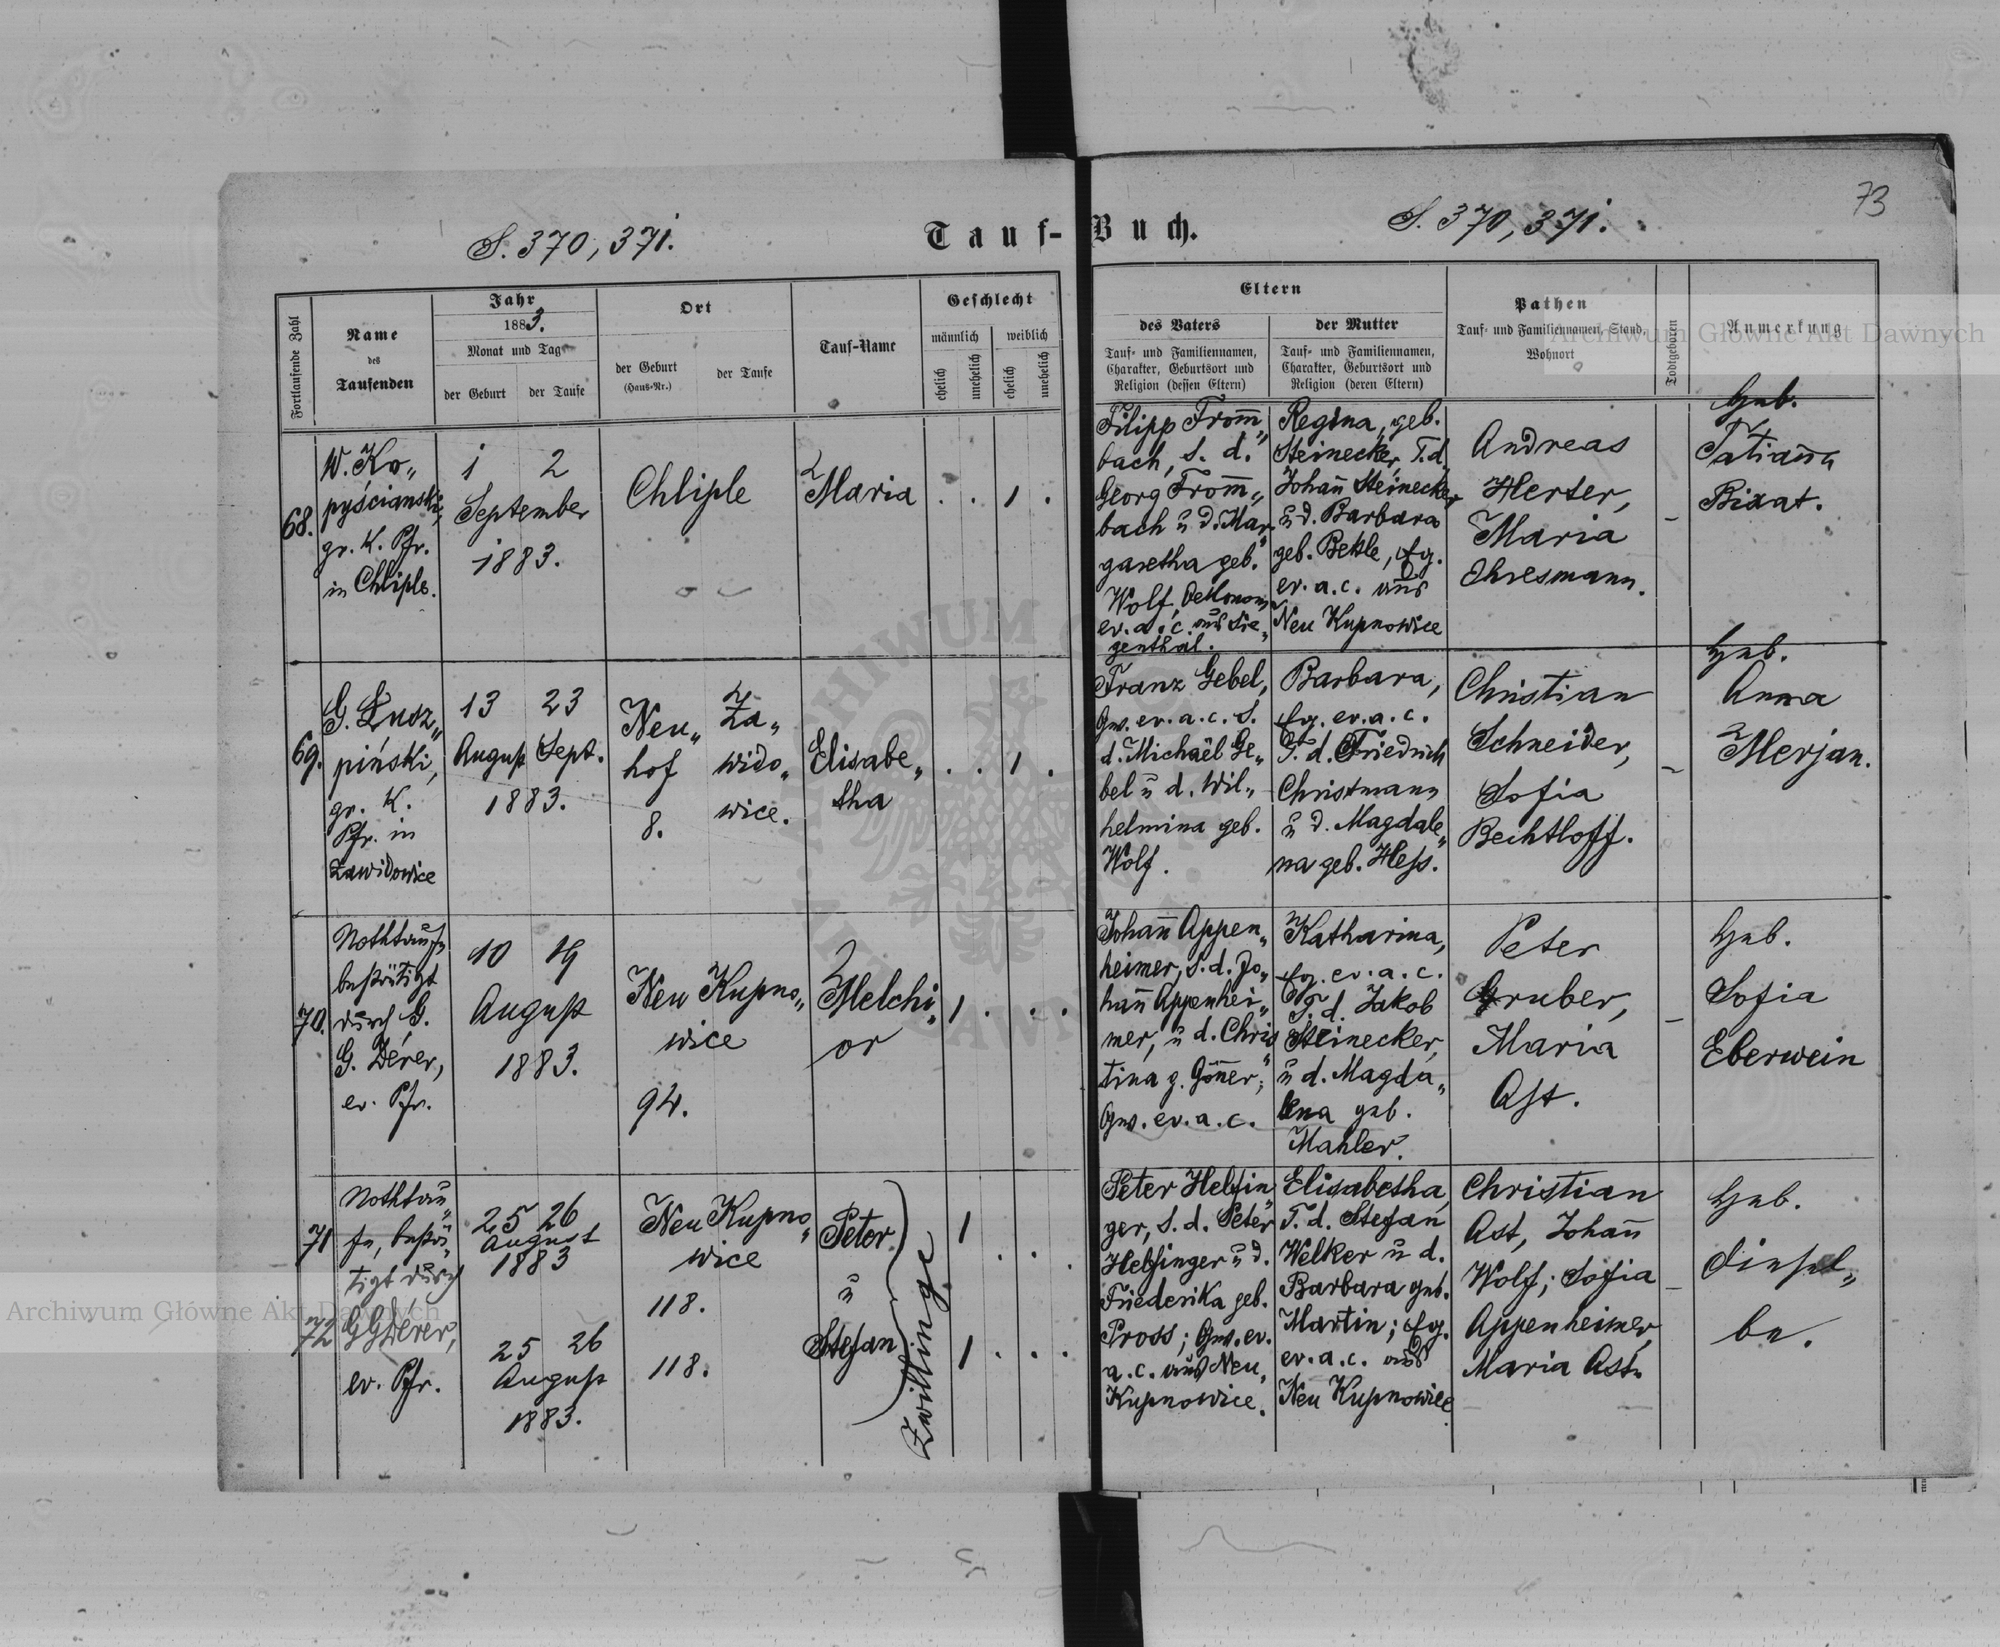 73
S. 370, 371.
Tauf-Buch.
S. 370, 371.
Fortlaufende Zahl
Name
des
Taufenden
Jahr
1883.
Monat und Tag
der Geburt
der Taufe
Ort
der Geburt
(Haus-Nr.)
der Taufe
Tauf-Name
Geschlecht
männlich
weiblich
ehelich
unehelich
ehelich
unehelich
Eltern
des Vaters
Tauf- und Familiennamen,
Charakter, Geburtsort und
Religion (dessen Eltern)
der Mutter
Tauf- und Familiennamen,
Charakter, Geburtsort und
Religion (deren Eltern)
Pathen
Tauf- und Familiennamen, Stand,
Wohnort
Todtgeboren
Anmerkung
Archiwum Główne Akt Dawnych
68.
W. Ko„
pyścianski,
gr. k. Pfr.
in Chliple.
1 2
September
1883.
Chliple
Maria
. . 1 .
Filipp From̅„
bach, S. d.
Georg From̅„
bach u d. Mar„
garetha geb.
Wolf, Oekonom
ev. a. c. aus Bie„
genthal.
Regina, geb.
Steinecker, T. d.
Johan̅ Steinecker
u d. Barbara
geb. Bekle, fg.
ev. a. c. aus
Neu Kupnowice
Andreas
Herter,
Maria
Ehresmann.
–
Heb.
Tatian̅a
Bixat.
69.
G. Łusz„
piński,
gr. k.
Pfr. in
Zawidowice
13 23
August Sept.
1883.
Neu„
hof
8.
Za„
wido„
wice.
Elisabe„
tha
. . 1 .
Franz Gebel,
Gw. ev. a. c. S.
d. Michaël Ge„
bel u d. Wil„
helmina geb.
Wolf.
Barbara,
fg. ev. a. c.
T. d. Friedrich
Christmann
u d. Magdale„
na geb. Hess.
Christian
Schneider,
Sofia
Bechtloff.
–
Heb.
Anna
Merjan.
70.
Nothtaufe
bestätigt
durch G.
G. Dérer,
ev. Pfr.
10 19
August
1883.
Neu Kupno„
wice
94.
Melchi„
or
1 . . .
Johan̅ Appen„
heimer, S. d. Jo„
han̅ Appenhei„
mer, u d. Chris„
tina g. Gön̅er;
Gw. ev. a. c.
Katharina,
fg. ev. a. c.
T. d. Jakob
Steinecker,
u d. Magda„
lena geb.
Mahler.
Peter
Gruber,
Maria
Ast.
–
Heb.
Sofia
Eberwein
71
72
Nothtau„
fe, bestä„
tigt durch
G G Dérer,
ev. Pfr.
25 26
August
1883
25 26
August
1883.
Neu Kupno„
wice
118.
118.
Peter
u
Stefan
Zwillinge
1 . . .
1 . . .
Peter Helfin„
ger, S. d. Peter
Helfinger u d.
Friederika geb.
Pross; Gw. ev.
a. c. aus Neu„
Kupnowice.
Elisabetha,
T. d. Stefan
Welker u d.
Barbara geb.
Martin; fg.
ev. a. c. aus
Neu Kupnowice
Christian
Ast, Johan̅
Wolf; Sofia
Appenheimer,
Maria Ast.
–
Heb.
diesel„
be.
Archiwum Główne Akt Dawnych